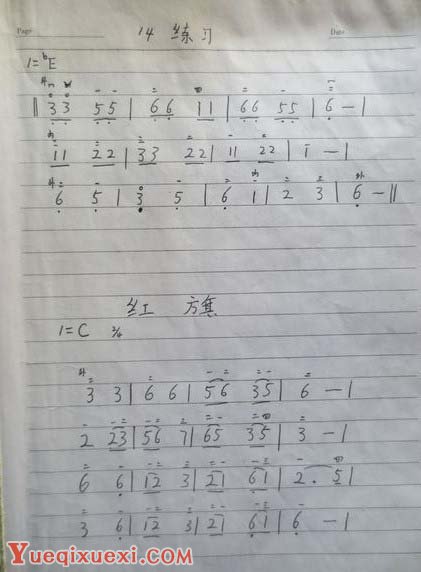 Page
Date
14 练习
1=♭E
‖ 33 55 | 66 11 | 66 55 | 6 - |
11 22 | 33 22 | 11 22 | 1 - |
6 5 | 3 5 | 6 1 | 2 3 | 6 - ‖
红 方集
1=C 2/4
3 3 | 6 6 | 56 35 | 6 - |
2 23 | 56 7 | 65 35 | 3 - |
6 6 | 12 3 | 21 61 | 2. 5 |
3 6 | 12 3 | 21 61 | 6 - |
YueqixueXi.com